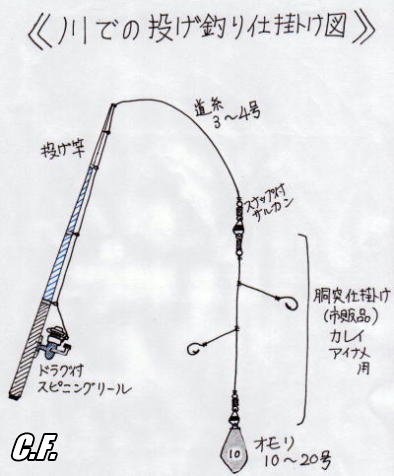 《川での投げ釣り仕掛け図》
道糸
3〜4号
投げ竿
スナップ付
サルカン
胴突仕掛け
(市販品)
カレイ
アイナメ
用
ドラグ付
スピニングリール
オモリ
10〜20号
10
C.F.